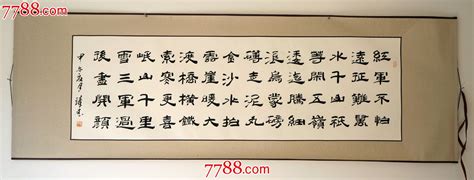 7788.com
紅軍不怕
遠征難萬
水千山祇
等閑五嶺
逶迤騰細
浪烏蒙磅
礴走泥丸
金沙水拍
雲崖暖大
渡橋橫鐵
索寒更喜
岷山千里
雪三軍過
後盡開顏
甲午
7788.com
7788.com